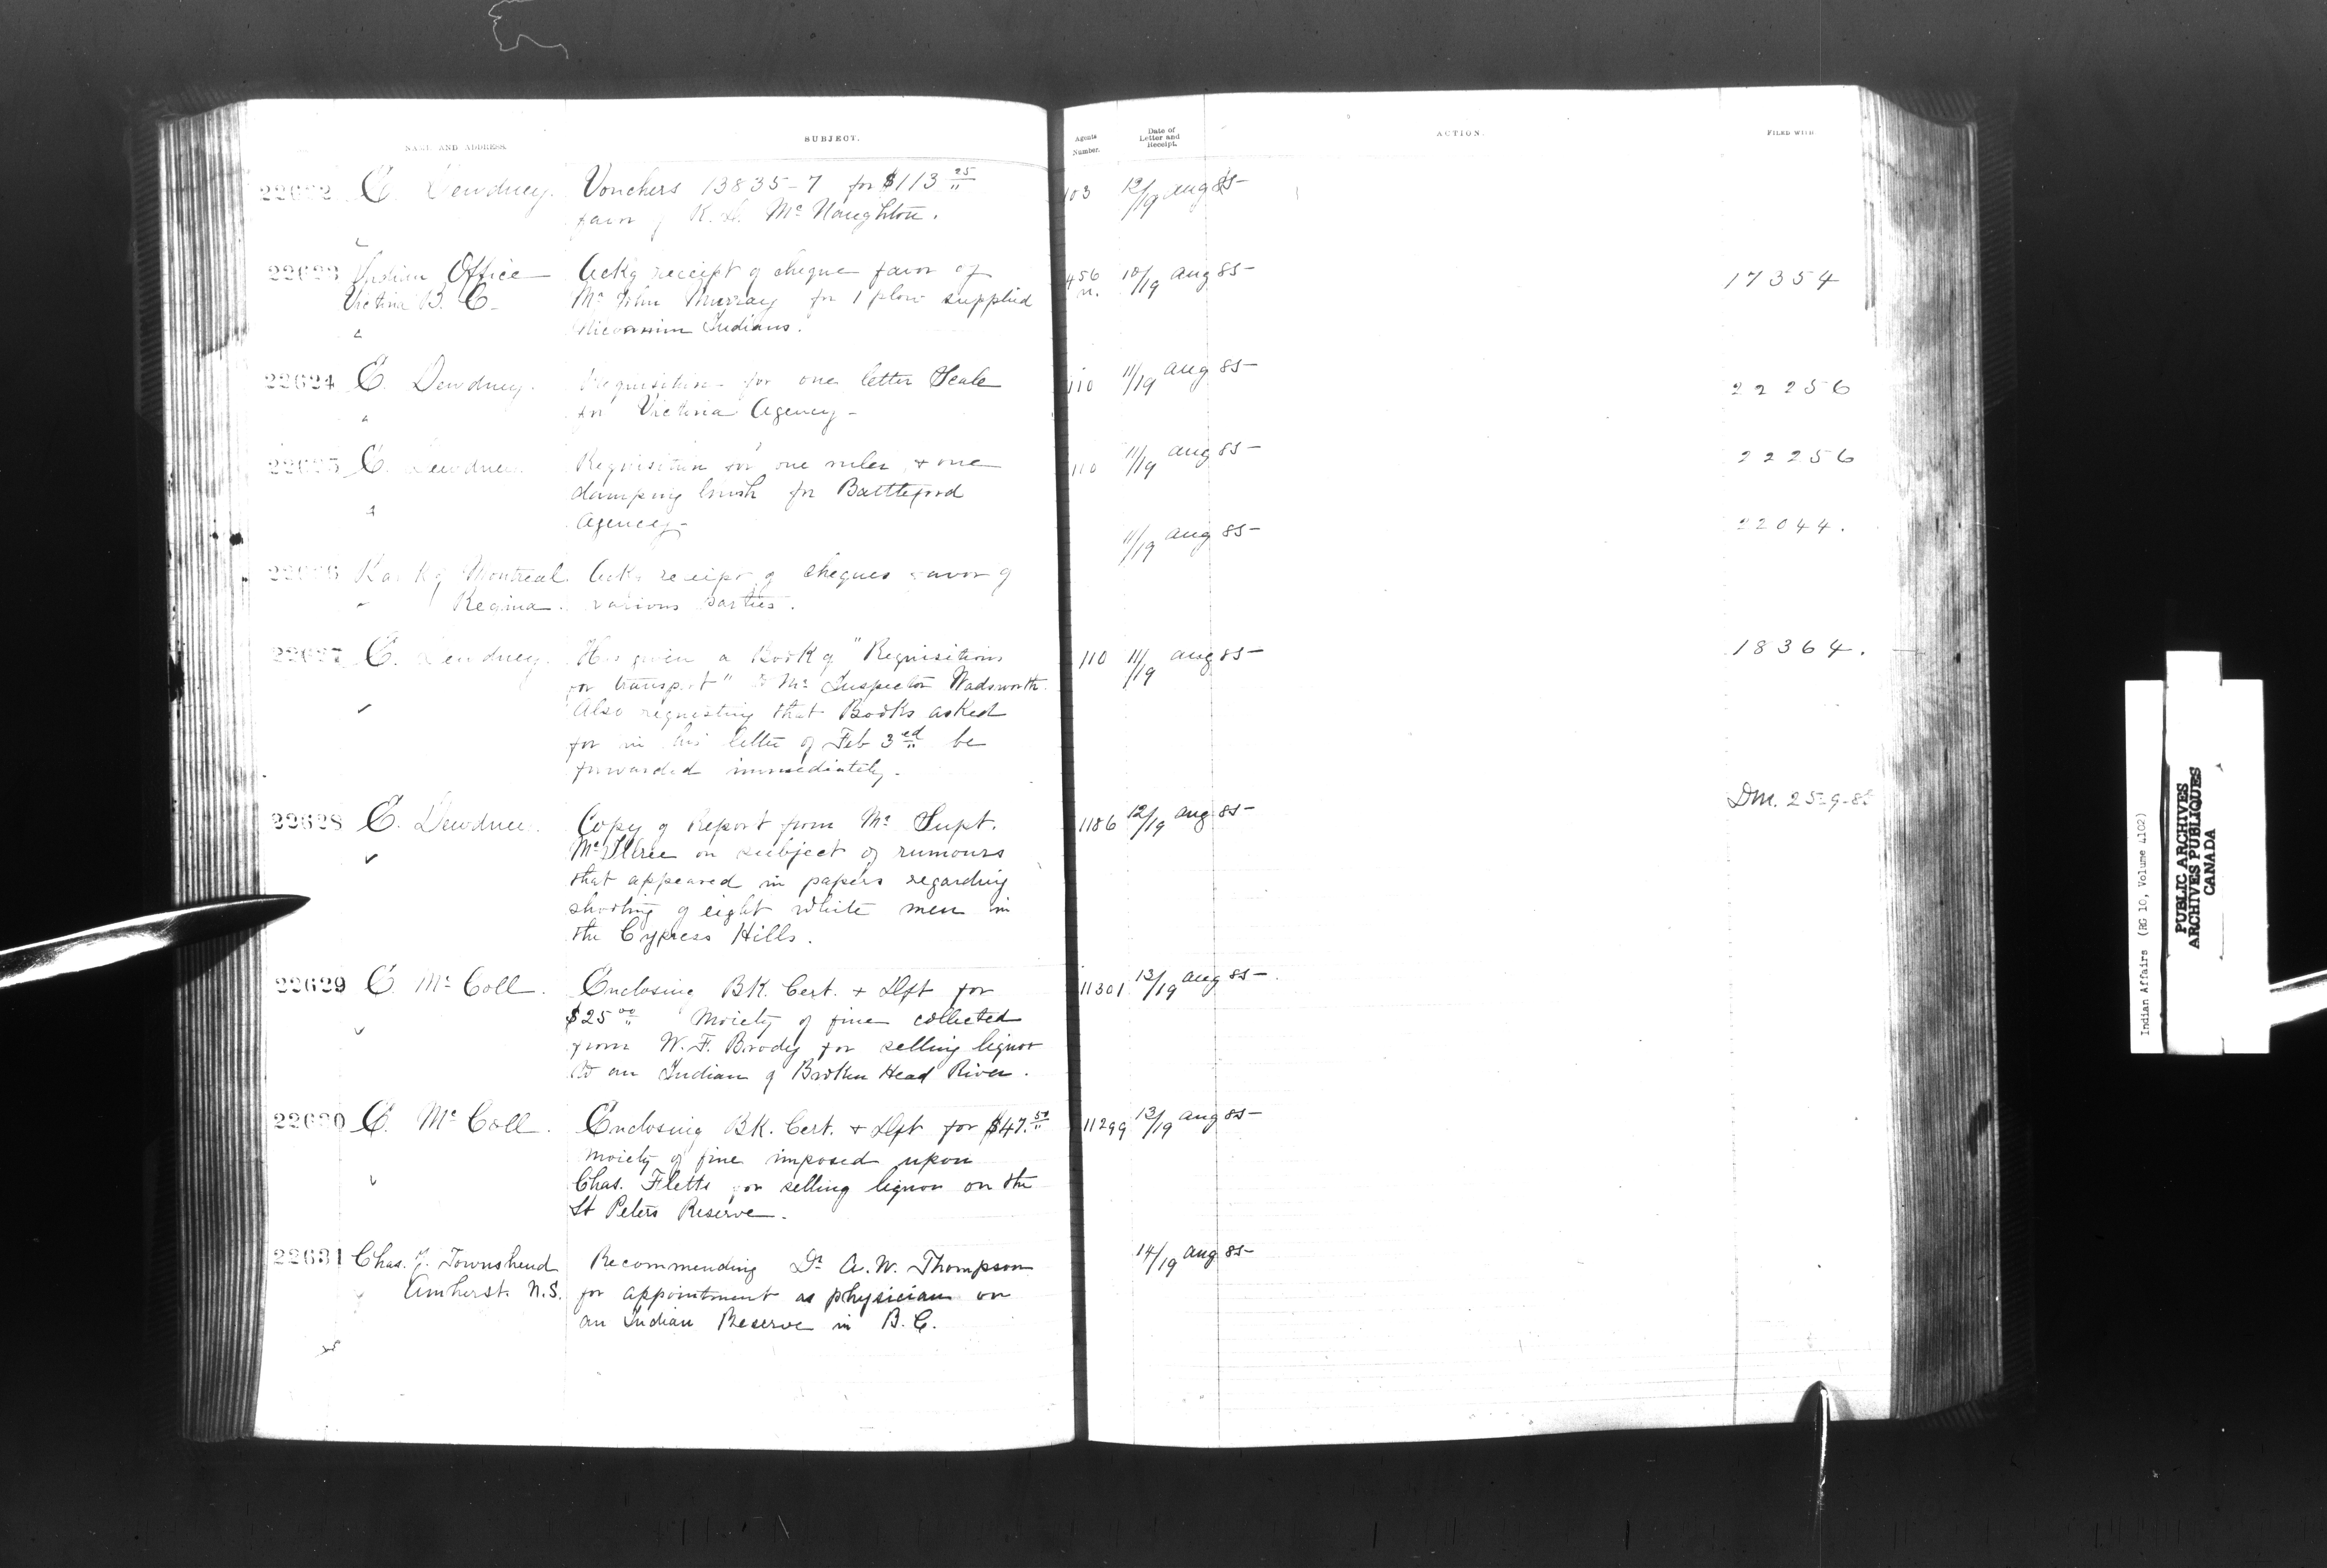 NAME AND ADDRESS.
SUBJECT.
Agents Number.
Date of Letter and Receipt.
ACTION.
FILED WITH
22622 E. Dewdney. Vouchers 13835-7 for $113 25 103 12/19 Aug 85
favor of Mc Naughton.
22623 Indian Office Ackg receipt of cheque favor of 456 10/19 Aug 85 17354
Victoria B. C. Mr John Murray for 1 plow supplied
Indians.
22624 E. Dewdney. Requisition for one letter Scale 110 11/19 Aug 85 22256
for Victoria Agency
22625 E. Dewdney Requisition for one ruler + one 110 11/19 Aug 85 22256
damping brush for Battleford
Agency 11/19 Aug 85 22044.
22626 Bank of Montreal Ackg receipt of cheques favor of
Regina. various parties.
22627 E. Dewdney. Has given a Book of "Requisitions 110 11/19 Aug 85 18364.
for transport" to Mr Inspector Wadsworth.
Also requesting that Books asked
for in his letter of Feb 3rd be
forwarded immediately.
22628 E. Dewdney. Copy of Report from Mr Supt. 1186 12/19 Aug 85 Dm. 25-9-85
on subject of rumours
that appeared in papers regarding
shooting of eight white men in
the Cypress Hills.
22629 E Mc Coll. Enclosing BK. Cert. + Dft for 11301 13/19 Aug 85
$25 00 Moiety of fine collected
from W. F. Brody for selling liquor
to an Indian of Broken Head River.
22630 E. Mc Coll. Enclosing BK. Cert. + Dft for $47.50 11299 13/19 Aug 85
moiety of fine imposed upon
Chas. Flett for selling liquor on the
St Peters Reserve.
22631 Chas. J. Townshend Recommending Dr A. W. Thompson 14/19 Aug 85
Amherst. N.S. for appointment as physician on
an Indian Reserve in B. C.
Indian Affairs (RG 10, Volume 4102)
PUBLIC ARCHIVES
ARCHIVES PUBLIQUES
CANADA